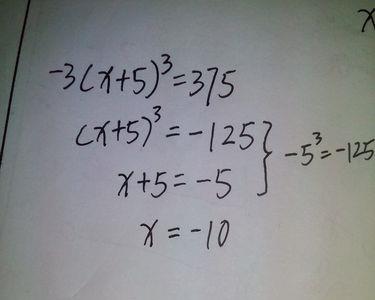 x
-3(x+5)³=375
(x+5)³=-125
x+5=-5
} -5³=-125
x=-10